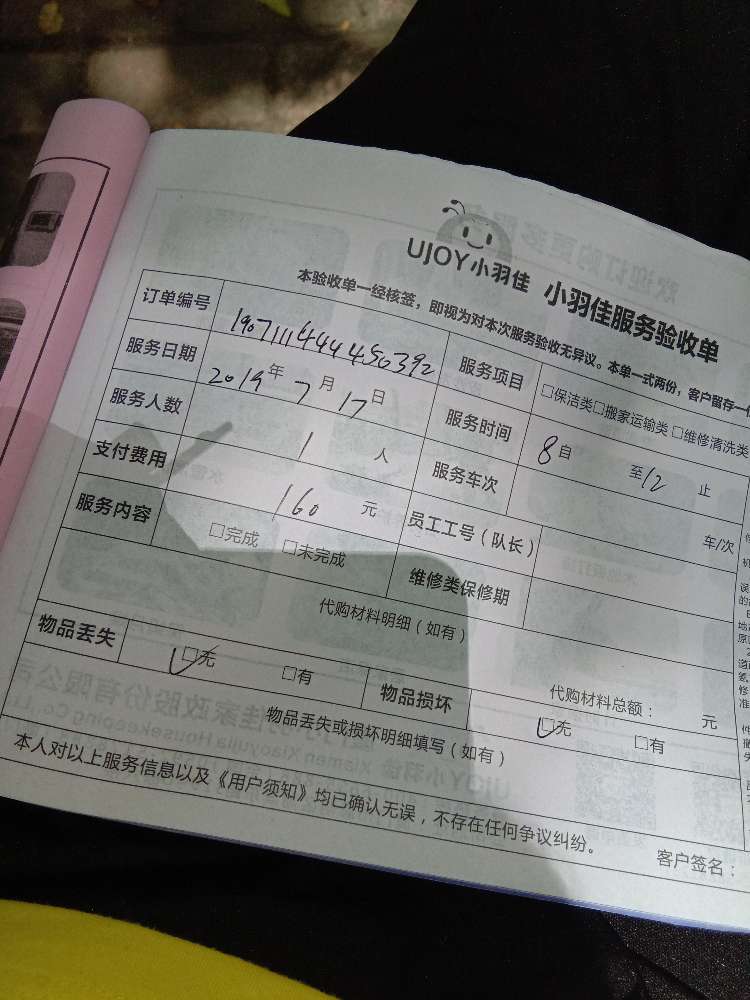 UJOY小羽佳 小羽佳服务验收单
本验收单一经核签，即视为对本次服务验收无异议。本单一式两份，客户留存一
订单编号 190711144445 服务项目 □保洁类□搬家运输类 □维修清洗类
服务日期 2019年7月17日 服务时间 8自 至12止
服务人数 1 人 服务车次 车/次
支付费用 160 元 员工工号（队长）
服务内容 □完成 □未完成 维修类保修期
代购材料明细（如有）
代购材料总额： 元
物品丢失 □无 □有 物品损坏 □无 □有
物品丢失或损坏明细填写（如有）
本人对以上服务信息以及《用户须知》均已确认无误，不存在任何争议纠纷。
客户签名：